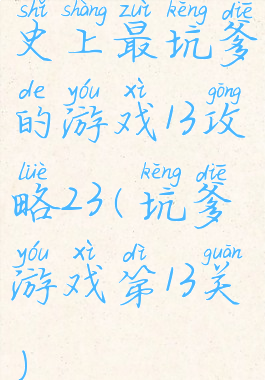 shǐ shàng zuì kēng diē
史上最坑爹
de yóu xì gōng
的游戏13攻
lüè kēng diē
略23(坑爹
yóu xì dì guān
游戏第13关
)